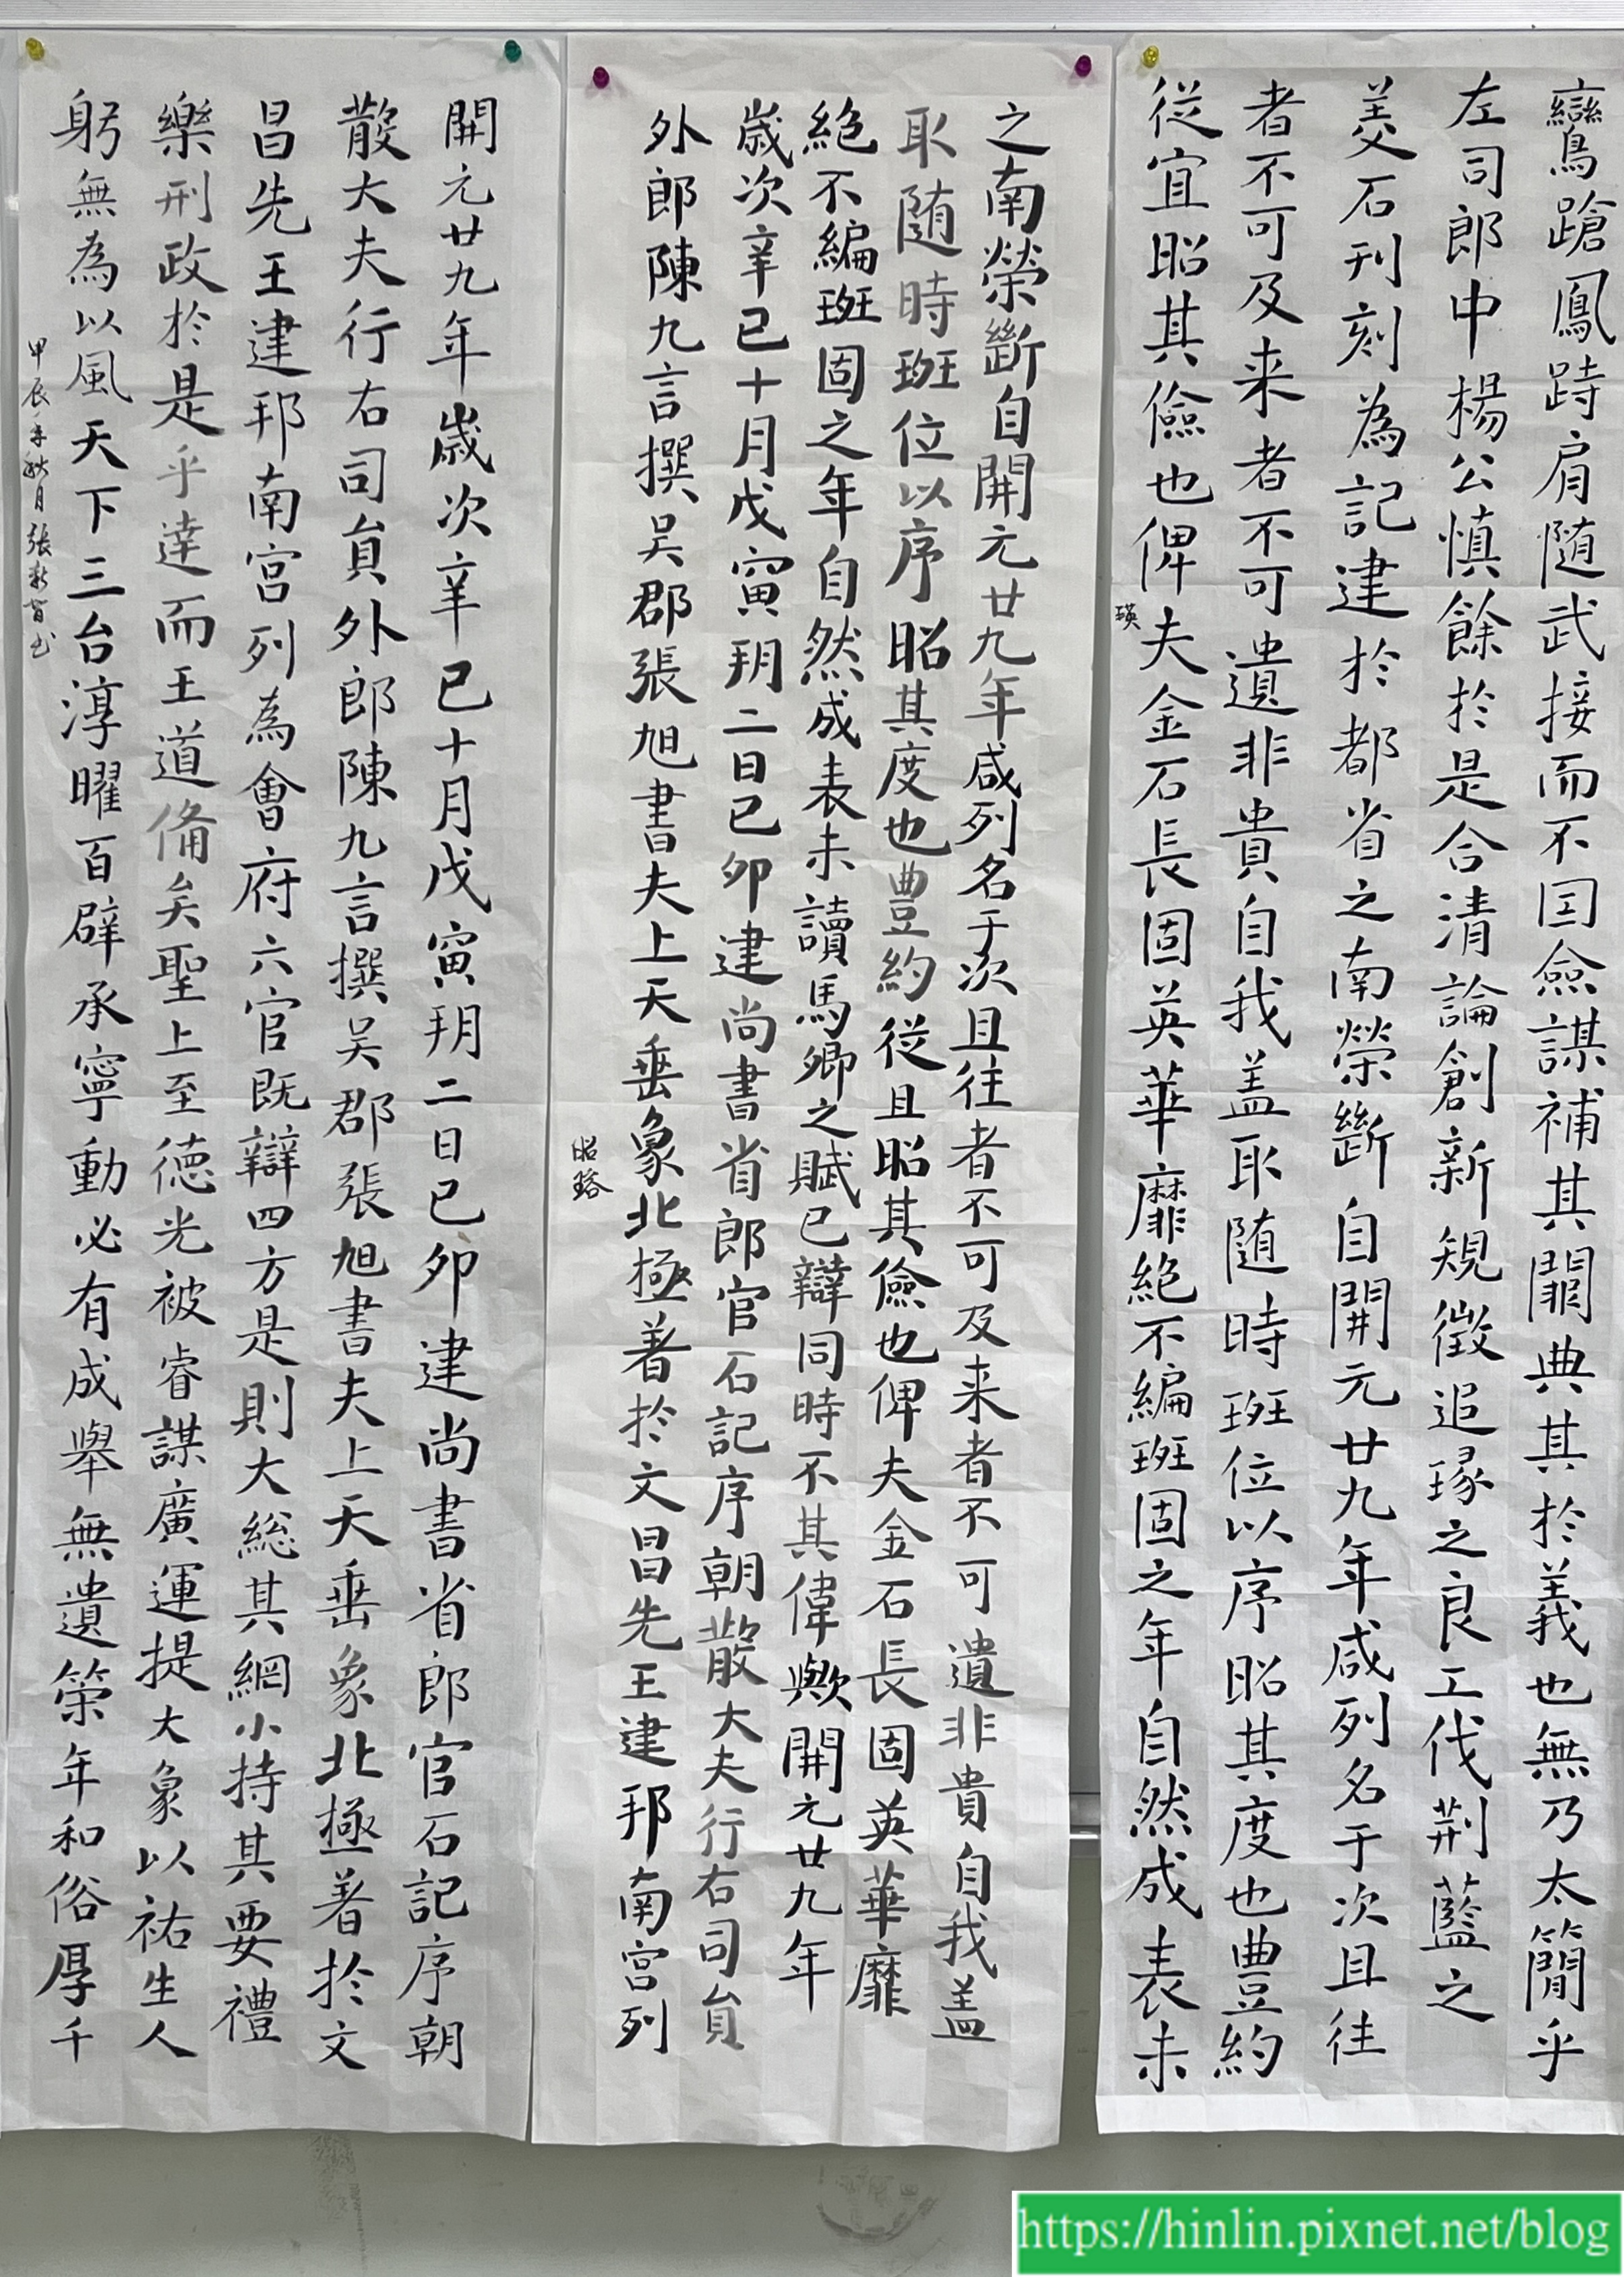 鸞蹌鳳跱肩随武接而不囯儉謀補其闕典其於義也無乃太簡乎
左司郎中楊公慎餘於是合清論創新規徵追琢之良工伐荆藍之
美石刊刻為記建於都省之南榮斷自開元廿九年咸列名于次且往
者不可及来者不可遺非貴自我盖取随時班位以序昭其度也豊約
従宜昭其儉也俾夫金石長固英華靡絶不編班固之年自然成表未
瑛
之南榮斷自開元廿九年咸列名于次且往者不可及来者不可遺非貴自我盖
取随時班位以序昭其度也豊約従且昭其儉也俾夫金石長固英華靡
絶不編班固之年自然成表未讀馬卿之賦已辯同時不其偉歟開元廿九年
歲次辛巳十月戊寅朔二日己卯建尚書省郎官石記序朝散大夫行右司貟
外郎陳九言撰吴郡張旭書夫上天垂象北極著於文昌先王建邦南宮列
昭
開元廿九年歲次辛巳十月戊寅朔二日己卯建尚書省郎官石記序朝
散大夫行右司貟外郎陳九言撰吴郡張旭書夫上天垂象北極著於文
昌先王建邦南宮列為會府六官既辯四方是則大総其綱小持其要禮
樂刑政於是乎達而王道俻矣聖上至德光被睿謀廣運提大象以祐生人
躬無為以風天下三台淳曜百辟承寧動必有成舉無遺策年和俗厚千
甲辰年秋月張
https://hinlin.pixnet.net/blog